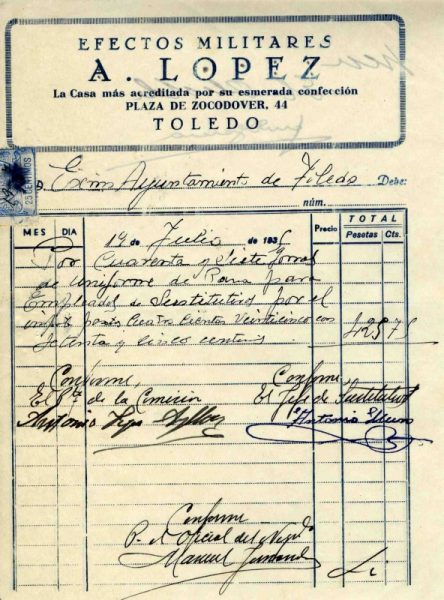 EFECTOS MILITARES
A. LOPEZ
La Casa más acreditada por su esmerada confección
PLAZA DE ZOCODOVER, 44
TOLEDO
25 CENTIMOS
D. Exmo Ayuntamiento de Toledo Debe:
núm.
MES DIA Precio TOTAL
Pesetas Cts.
19 de Julio de 193
Por Cuarenta y Siete Gorras
de uniforme de Pana para
Empleados de Sustitutivos por el
Cuatrocientas Veinticinco con
Setenta y cinco centimos
425 75
Conforme, Conforme,
El de la Comision El Jefe de Sustitutivos
Antonio Antonio
Conforme
P. A. Oficial del
Manuel